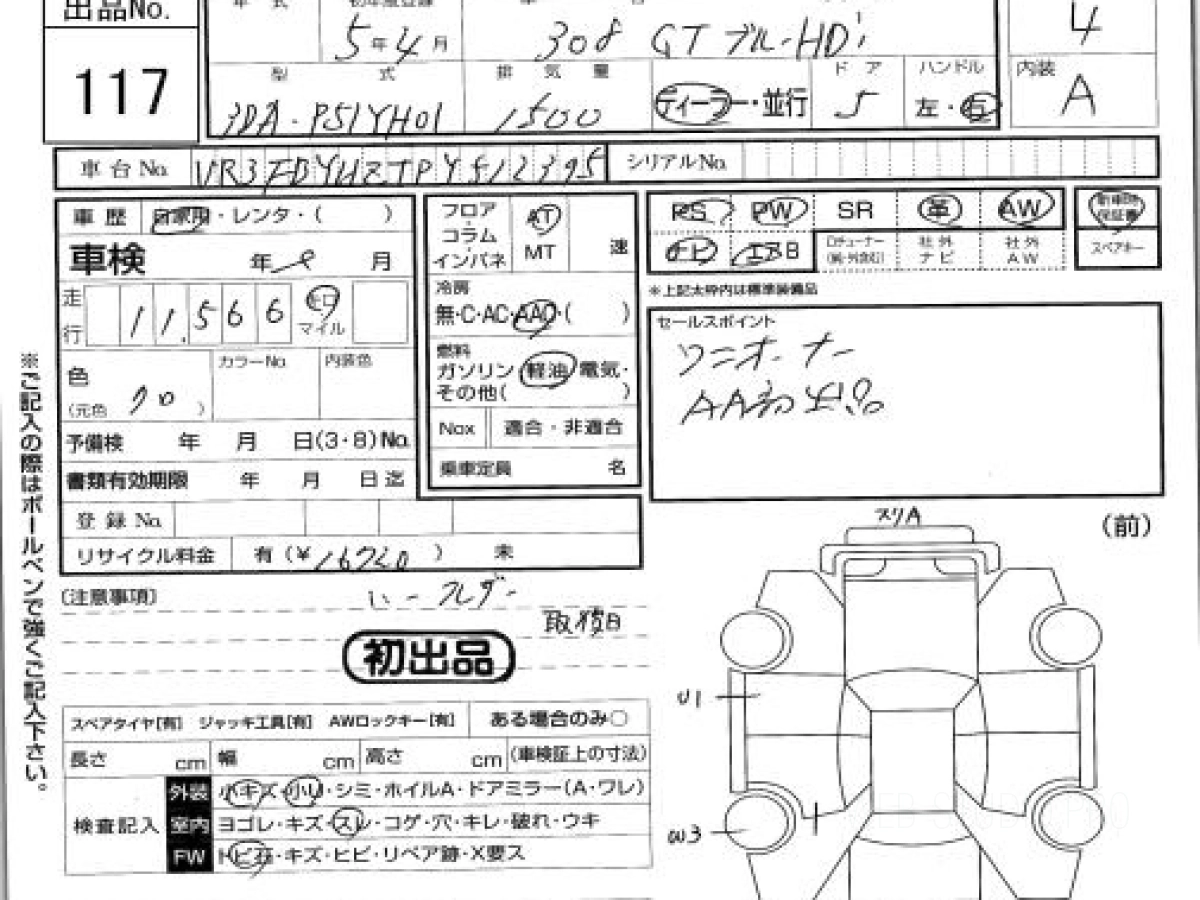 出品No.
117
年 式
初年度登録
5年4月
308 GT ブルーHDi
4
型 式
3DA-P51YH01
排 気 量
1500
ディーラー・並行
ド ア
5
ハンドル
左・右
内装
A
車台No.
シリアルNo.
車 歴 自家用・レンタ・( )
車検 年 月
走行 11,566 キロ マイル
色 (元色 クロ )
カラーNo.
内装色
予備検 年 月 日(3・8)No.
書類有効期限 年 月 日迄
登 録 No.
リサイクル料金 有(¥16720 ) 未
フロア・コラム・インパネ
AT
MT
速
冷房
無・C・AC・AAC・( )
燃料
ガソリン・軽油・電気・
その他( )
Nox 適合・非適合
乗車定員 名
PS PW SR 革 AW
ナビ エアB
ロチューナー(純・外含む)
社外ナビ
社外AW
新車時保証書
スペアキー
※上記太枠内は標準装備品
セールスポイント
ワンオーナー
AA初出品
※ご記入の際はボールペンで強くご記入下さい。
(注意事項)
取後日
初出品
スリA
(前)
U1
W3
スペアタイヤ[有] ジャッキ工具[有] AWロックキー[有] ある場合のみ○
長さ cm 幅 cm 高さ cm (車検証上の寸法)
検査記入
外装 小キズ・小U・シミ・ホイルA・ドアミラー(A・ワレ)
室内 ヨゴレ・キズ・スレ・コゲ・穴・キレ・破れ・ウキ
FW トビ石・キズ・ヒビ・リペア跡・X要ス